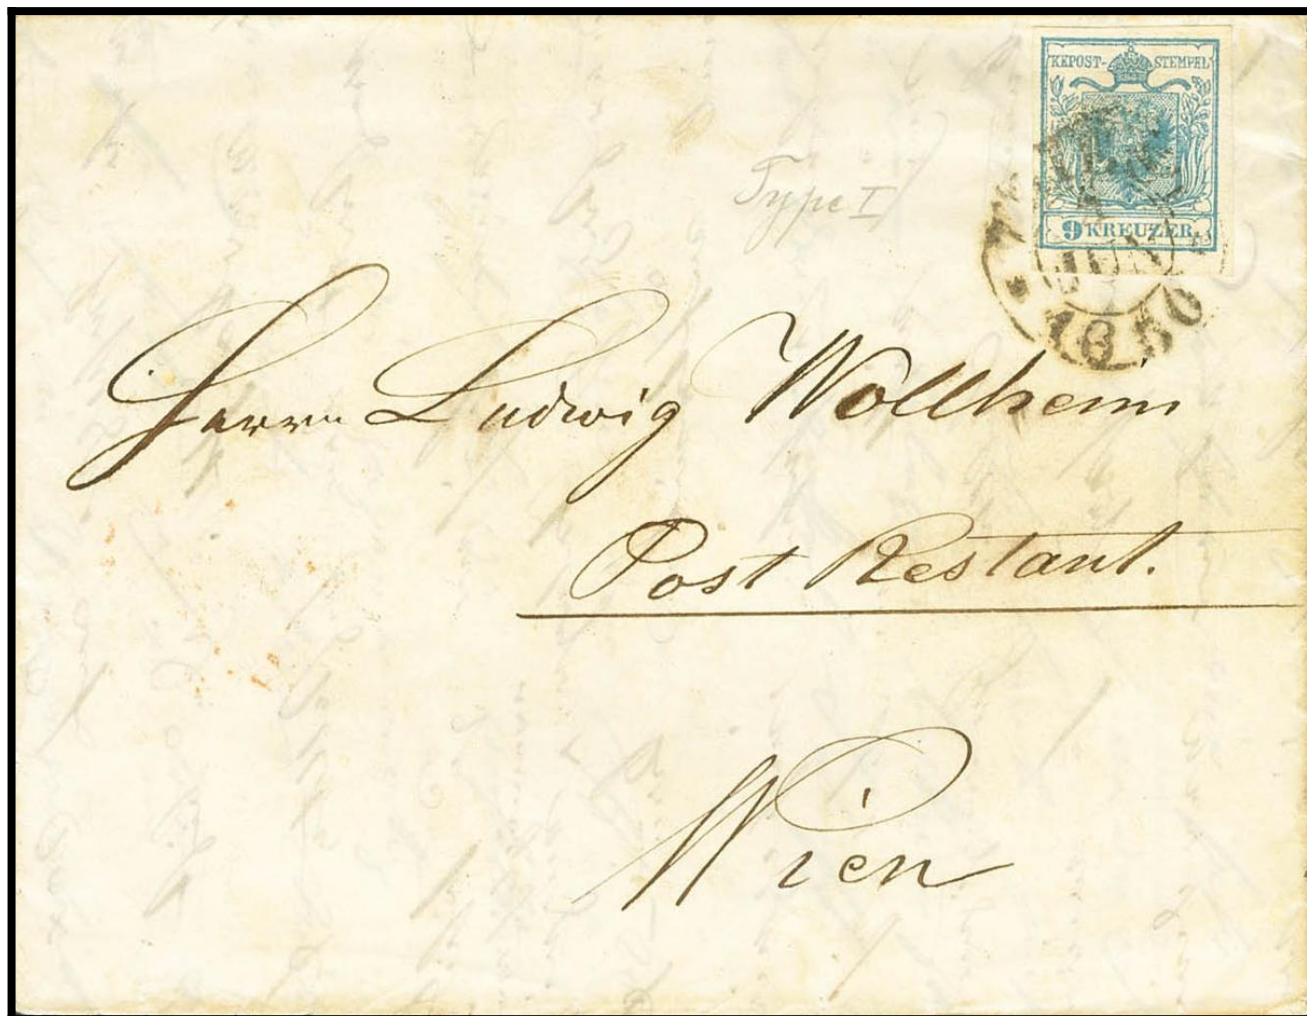 KKPOST-STEMPEL
9 KREUZER
JUN
1850
Type I
Herrn Ludwig Wollheim
Post Restant.
Wien